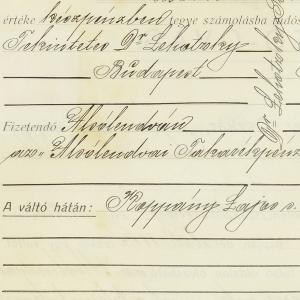 értéke készpénzben tegye számolásba adós
Tekintetes Dr Lehotzky
Budapest
Fizetendő Alsólendván
az „Alsólendvai Takarékpénz
A váltó hátán: Koppány Lajos s.
Dr Lehotzky